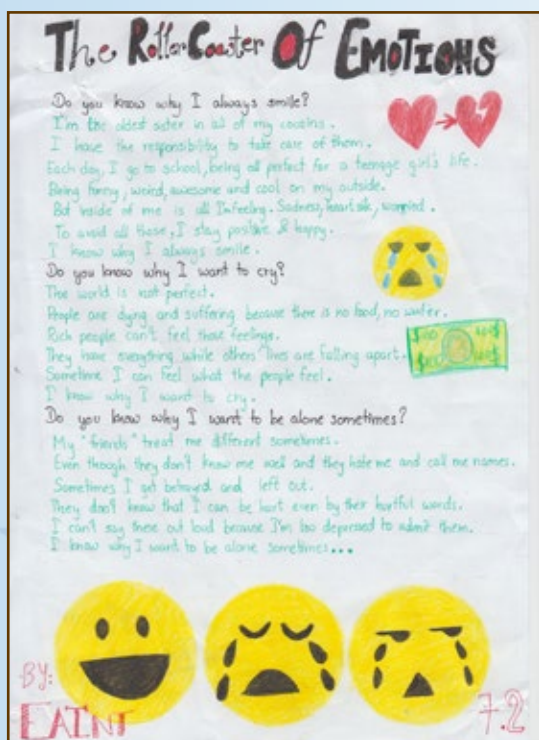 The Roller Coaster Of EMOTIONS
Do you know why I always smile?
I'm the oldest sister in all of my cousins.
I have the responsibility to take care of them.
Each day, I go to school, being all perfect for a teenage girl's life.
Being funny, weird, awesome and cool on my outside.
But inside of me is all I'm feeling. Sadness, heartache, worried.
To avoid all those, I stay positive & happy.
I know why I always smile.
Do you know why I want to cry?
The world is not perfect.
People are dying and suffering because there is no food, no water.
Rich people can't feel those feelings.
They have everything while others' lives are falling apart.
Sometime I can feel what the people feel.
I know why I want to cry.
$100 100$
$100 100$
Do you know why I want to be alone sometimes?
My "friends" treat me different sometimes.
Even though they don't know me well and they hate me and call me names.
Sometimes I get betrayed and left out.
They don't know that I can be hurt even by their hurtful words.
I can't say these out loud because I'm too depressed to admit them.
I know why I want to be alone sometimes...
BY:
EAINT
7.2